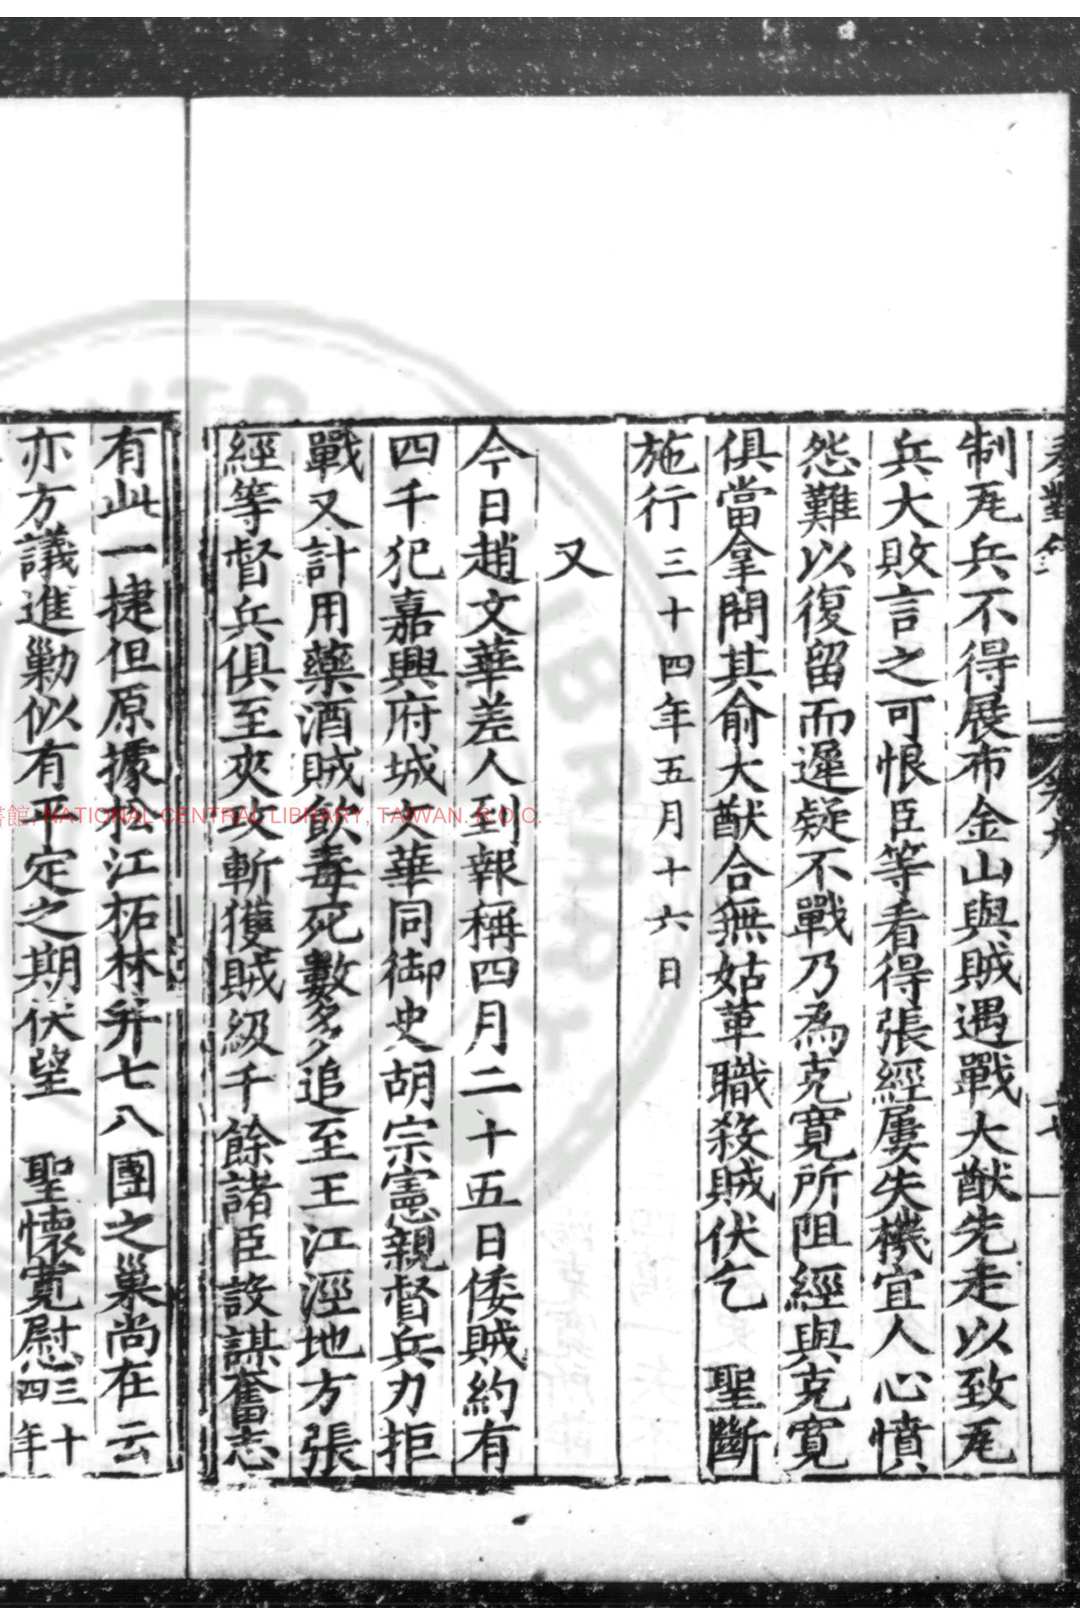 制尨兵不得展布金山與賊遇戰大猷先走以致尨
兵大敗言之可恨臣等看得張經屢失機宜人心憤
怨難以復留而遲疑不戰乃為克寬所阻經與克寬
俱當拿問其俞大猷合無姑革職殺賊伏乞　聖斷
施行三十四年五月十六日
又
今日趙文華差人到報稱四月二十五日倭賊約有
四千犯嘉興府城文華同御史胡宗憲親督兵力拒
戰又計用藥酒賊飲毒死數多追至王江涇地方張
經等督兵俱至夾攻斬獲賊級千餘諸臣設謀奮志
有此一捷但原據松江柘林并七八團之巢尚在云
亦方議進勦似有平定之期伏望　聖懷寬慰三十四年
書館, NATIONAL CENTRAL LIBRARY, TAIWAN. R.O.C.